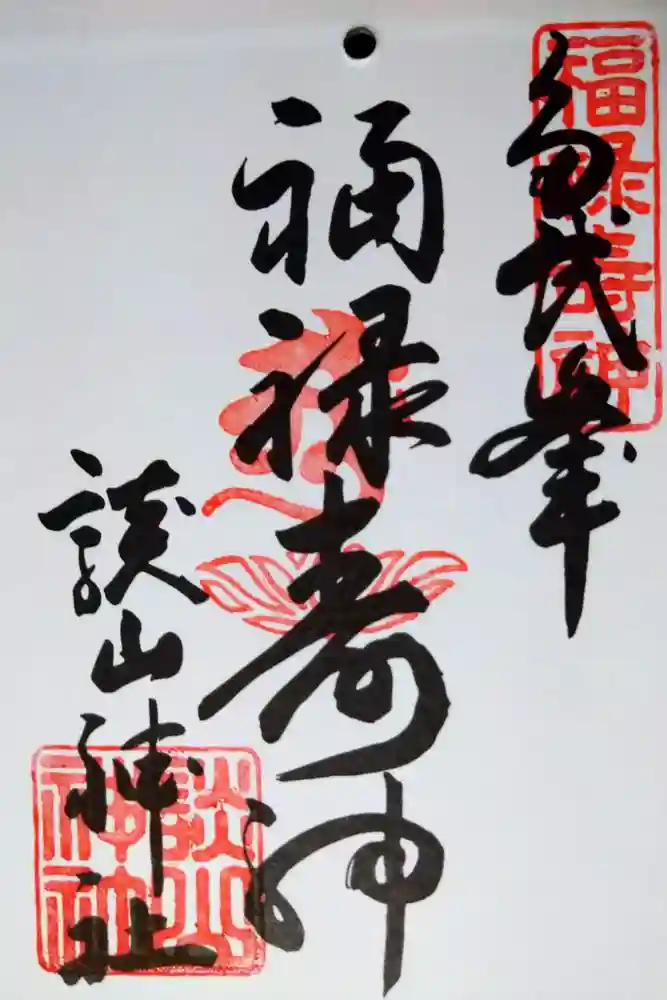 多武峯
福禄寿神
福禄寿神
談山神社
談山神社